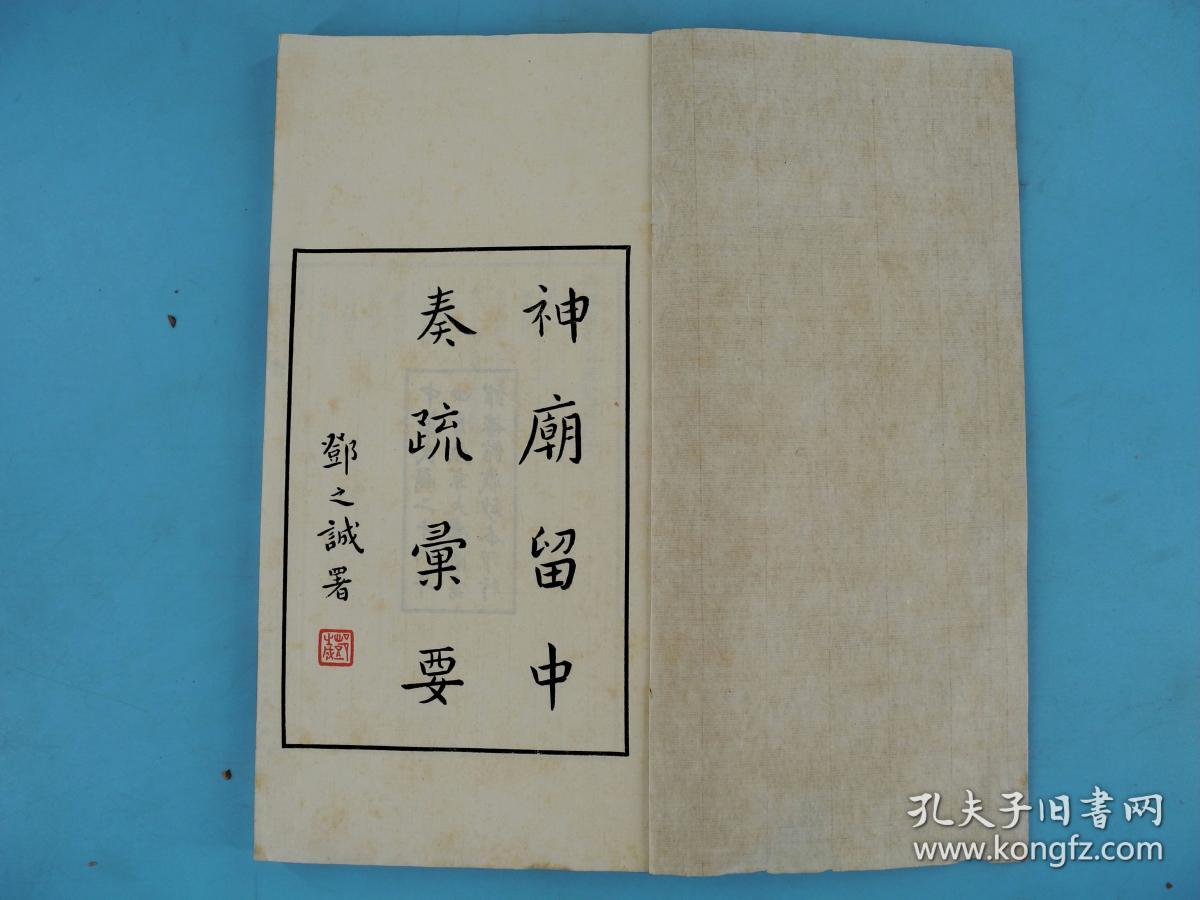 神廟留中
奏疏彙要
鄧之誠署
孔夫子旧书网
www.kongfz.com